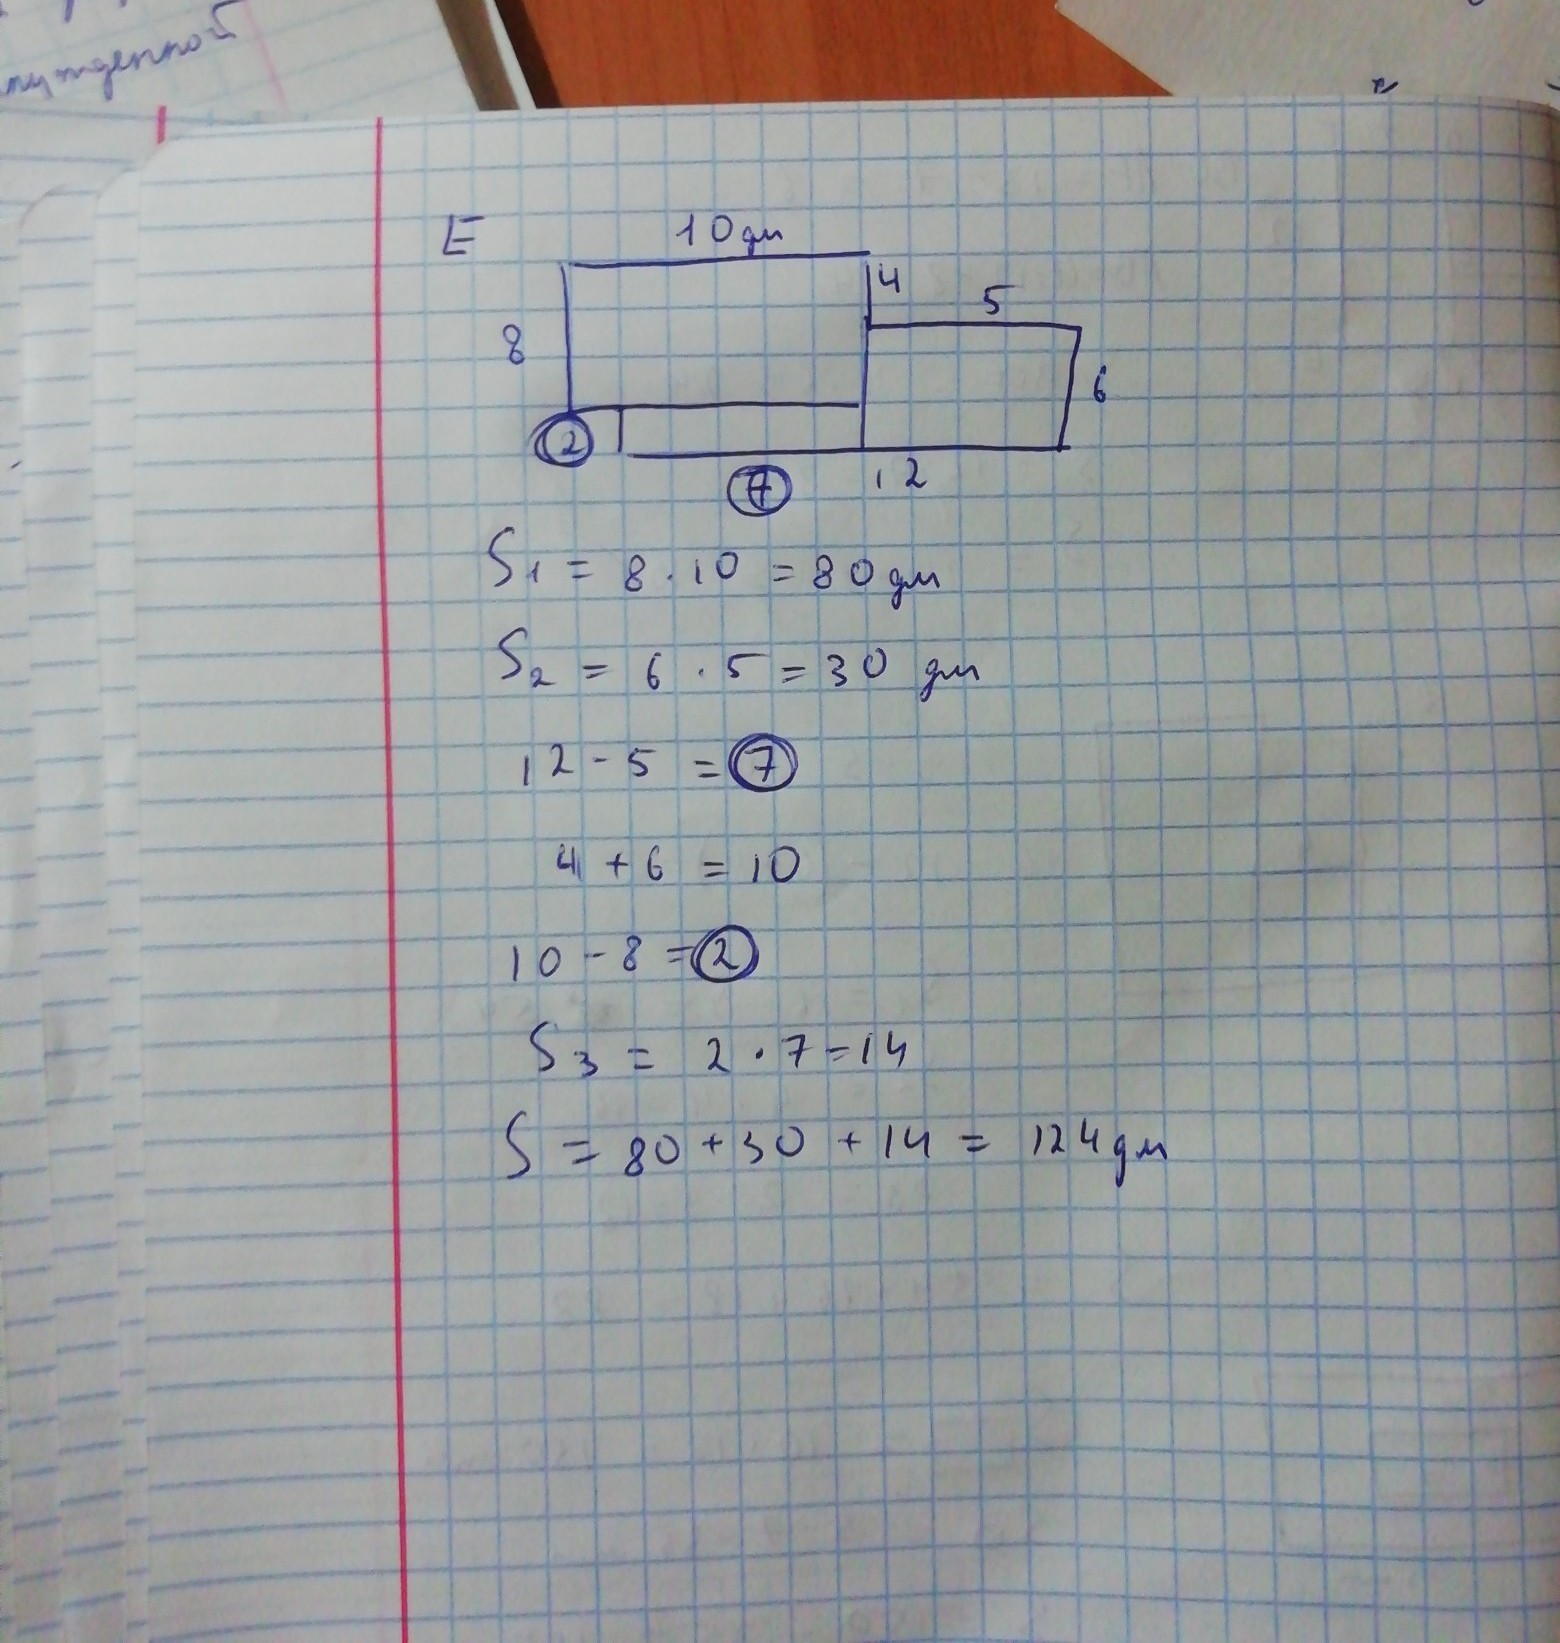 нужденной
E
10 дм
4
5
8
6
2
7
12
S1 = 8 · 10 = 80 дм
S2 = 6 · 5 = 30 дм
12 - 5 = 7
4 + 6 = 10
10 - 8 = 2
S3 = 2 · 7 = 14
S = 80 + 30 + 14 = 124 дм